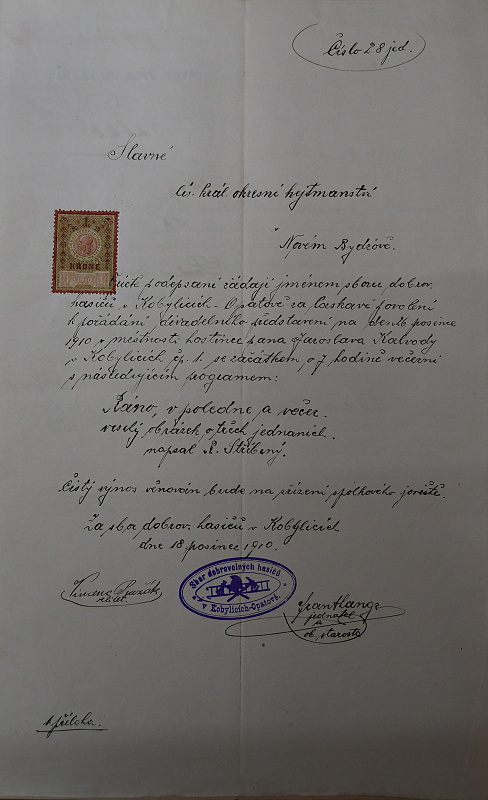 Číslo 28 jed.
Slavné
Cís. král. okresní hejtmanství
v Novém Bydžově.
1
KRONE
podepsaní žádají jménem sboru dobrov.
hasičů v Kobylicích-Opatově za laskavé povolení
k pořádání divadelního představení na den 26 posince
1910 v místnosti hostince pana Jaroslava Kalvody
v Kobylicích čp. 1. se začátkem o 7 hodině večerní
s následujícím programem:
Ráno, v poledne a večer.
veselý obrázek o třech jednáních.
napsal R. Stříbrný.
Čistý výnos věnován bude na zřízení spolkového jeviště.
Za sbor dobrov. hasičů v Kobylicích
dne 18 posince 1910.
Sbor dobrovolných hasičů
v Kobylicích-Opatově.
jednatel
ob. starosta
1 příloha.